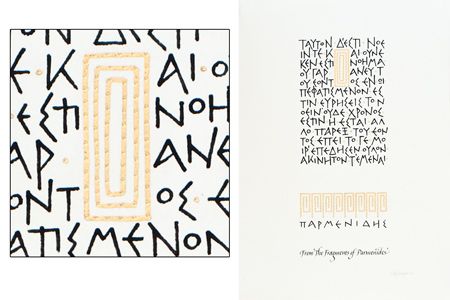 Ε Κ ΑΙ ΟΥ
ΕΣΤΙ ΝΟΗ
ΑΡ ΑΝΕ
ΟΝΤ ΟΣ Ε
ΑΤΙΣΜΕΝΟΝ
ΤΑΥΤΟΝ Δ ΕΣΤΙ ΝΟΕ
ΙΝ ΤΕ Κ ΑΙ ΟΥΝΕ
ΚΕΝ ΕΣΤΙ ΝΟΗΜΑ
ΟΥ ΓΑΡ ΑΝΕΥ Τ
ΟΥ ΕΟΝΤ ΟΣ ΕΝ Ω
ΠΕΦΑΤΙΣΜΕΝΟΝ ΕΣ
ΤΙΝ ΕΥΡΗΣΕΙΣ ΤΟ Ν
ΟΕΙΝ ΟΥΔΕ ΧΡΟΝΟΣ
ΕΣΤΙΝ Η ΕΣΤΑΙ ΑΛ
ΛΟ ΠΑΡΕΞ ΤΟΥ ΕΟΝ
ΤΟΣ ΕΠΕΙ ΤΟ ΓΕ ΜΟ
ΙΡ ΕΠΕΔΗΣΕΝ ΟΥΛΟΝ
ΑΚΙΝΗΤΟΝ Τ ΕΜΕΝΑΙ
ΠΑΡΜΕΝΙΔΗΣ
from 'The Fragments of Parmenides'